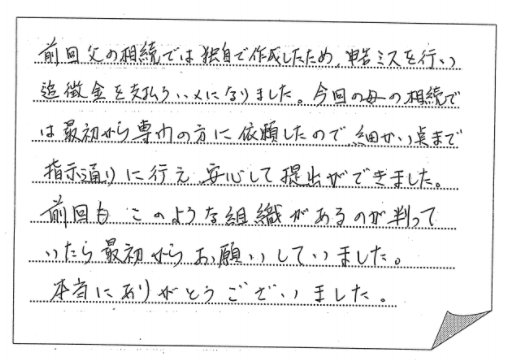 前回父の相続では独自で作成したため、申告ミスを行い
追徴金を支払うハメになりました。今回の母の相続で
は最初から専門の方に依頼したので細かい点まで
指示通りに行え安心して提出ができました。
前回も このような組織があるのが判って
いたら最初からお願いしていました。
本当にありがとうございました。